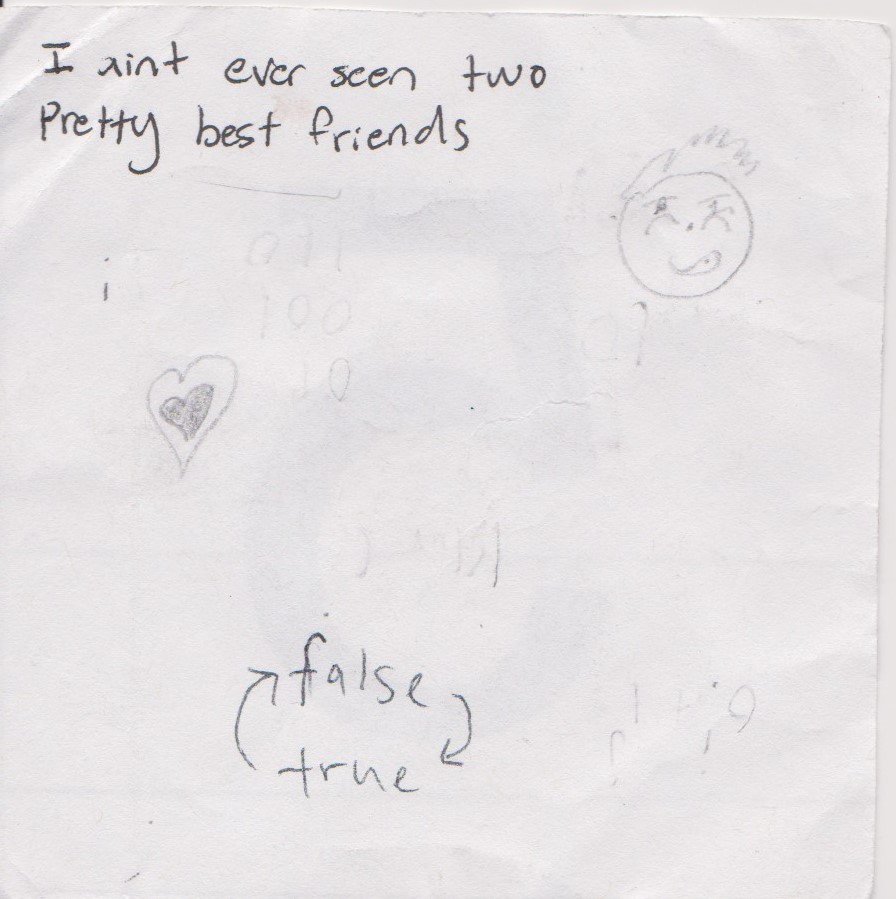 I aint ever seen two
Pretty best friends
i
false
true